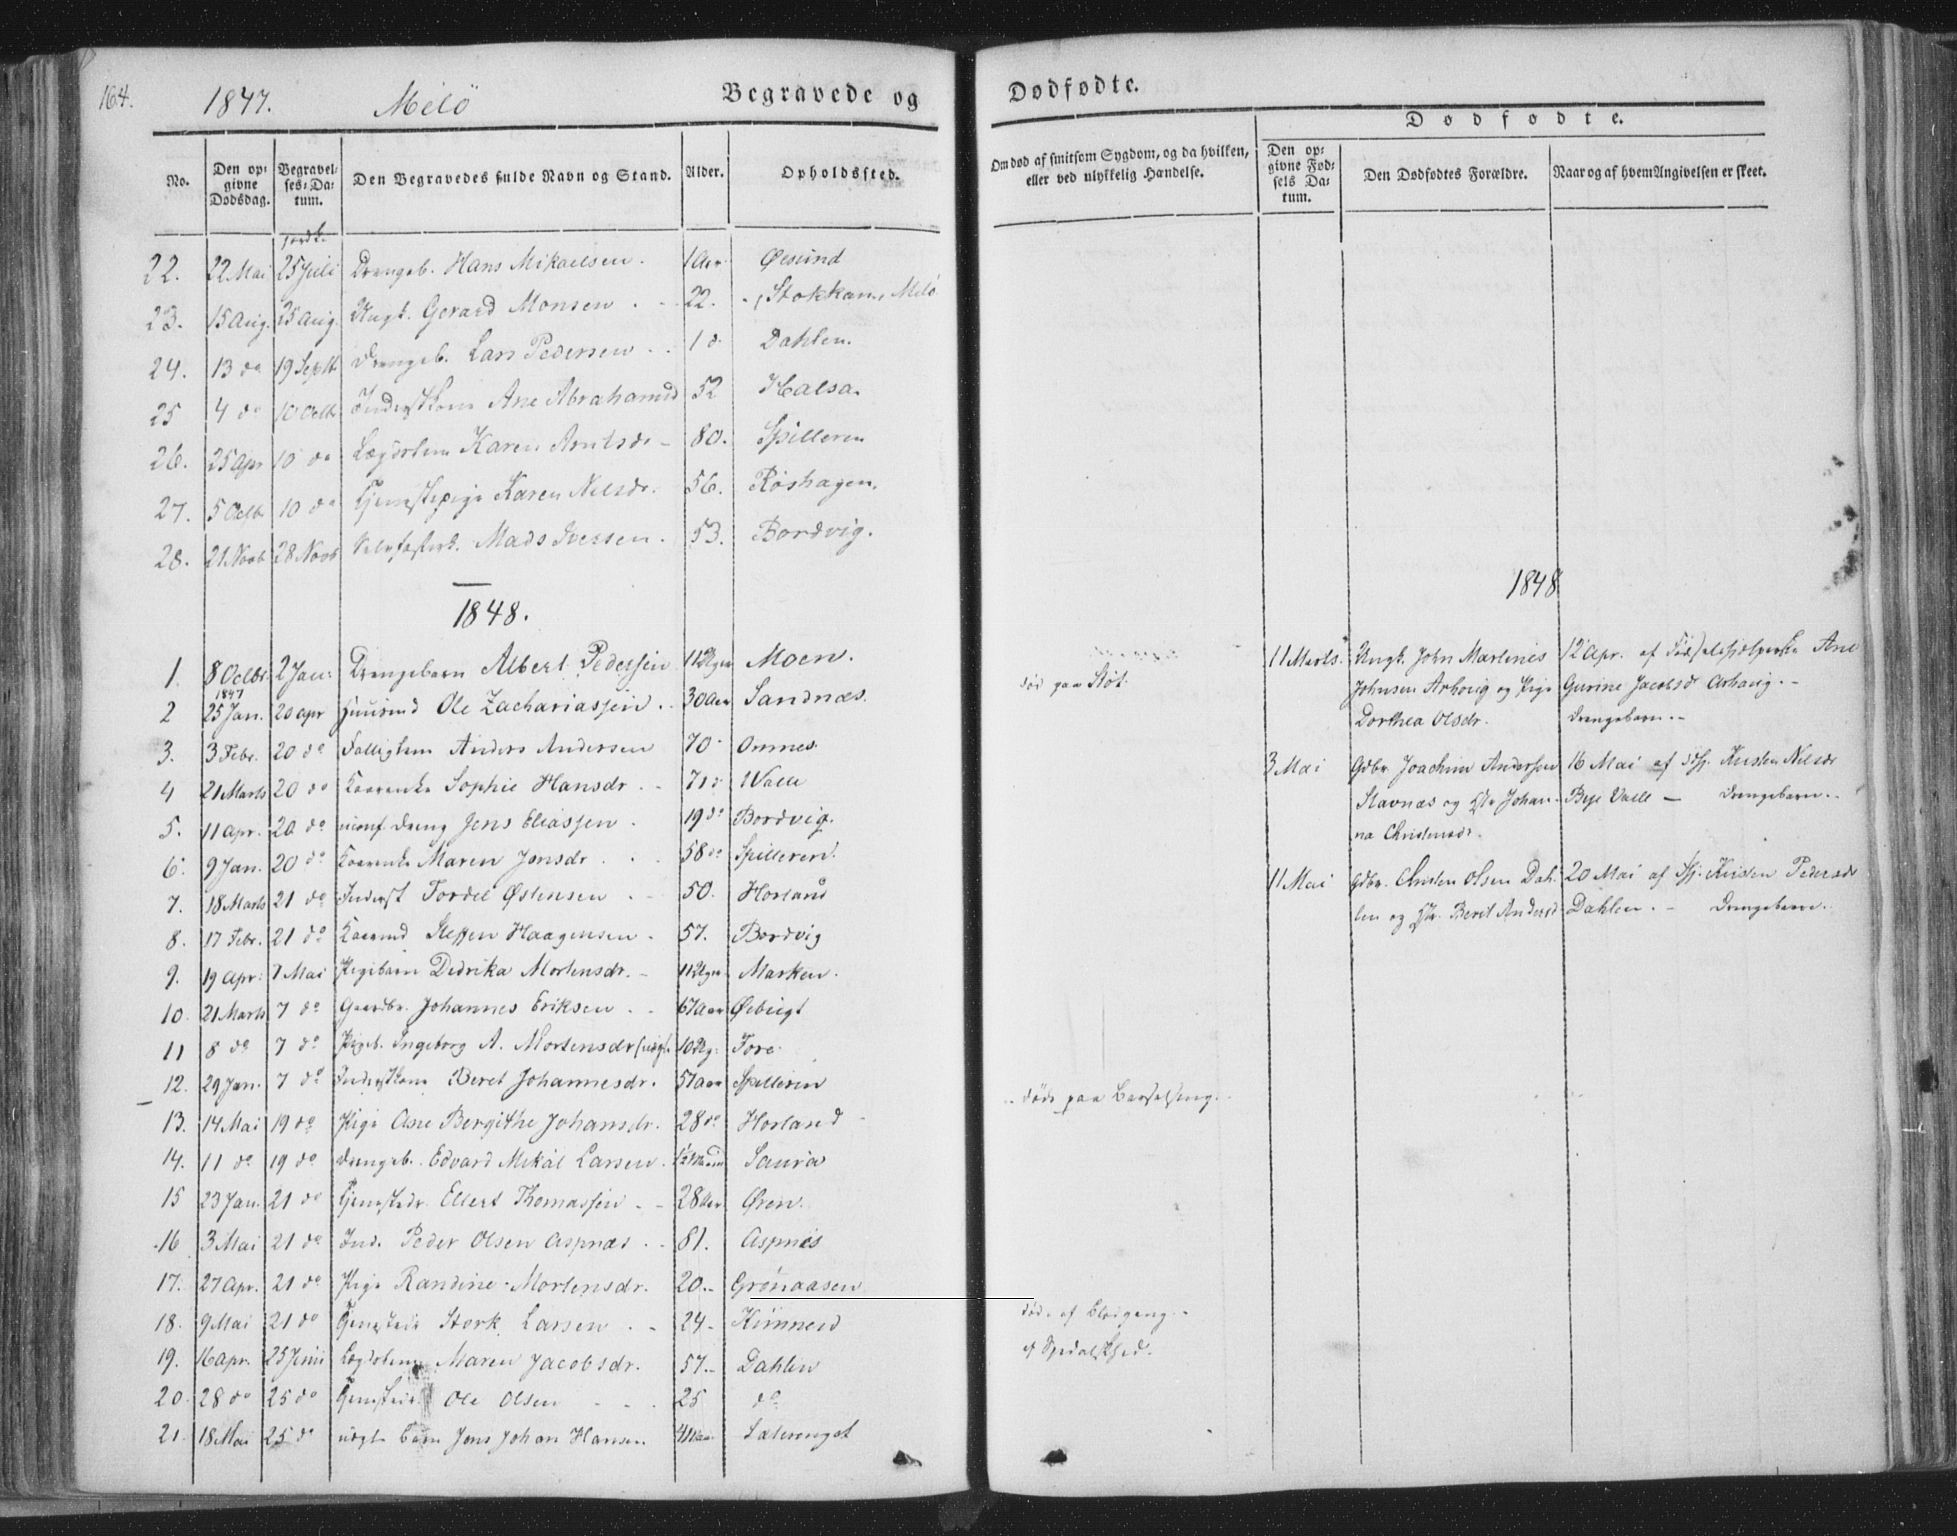 164.
1847. Melö Begravede og Dødfødte.
No. Den opgivne Dødsdag. Begravelses-Datum. Den Begravedes fulde Navn og Stand. Alder. Opholdssted.
Om død af smitsom Sygdom, og da hvilken, eller ved ulykkelig Hændelse.
Dødfødte.
Den opgivne Fødsels Datum. Den Dødfødtes Forældre. Naar og af hvem Angivelsen er skeet.
22. 22 Mai 25 Juli Drengeb. Hans Mikaelsen. 1 Aar Øesund
23. 15 Aug. 25 Aug. Ungk. Gerard Monsen 22. Stokkam, Melö
24. 13 do 19 Septb Drengeb. Lars Pedersen 1 d. Dahlen.
25 4 do 10 Octb Inderstkone Ane Abrahamsd 52 Halsa.
26. 25 Apr 10 do Lægdslem Karen Arntsdr 80. Spilleren
27. 5 Octb 10 do Tjenestepige Karen Nilsdr. 56. Røshagen.
28. 21 Novb 28 Novb Mads Iversen. 53. Bordvig.
1848.
1. 8 Octbr 1847 2 Jan. Drengebarn Albert Pedersen 11 Uger Moen.
2 25 Jan. 20 Apr Huusmd Ole Zachariassen. 30 Aar Sandnæs.
død paa Støt
3. 3 Febr. 20 do Fattiglem Anders Andersen 70 Onnes
4 21 Marts 20 do Kaarenke Sophie Hansdr. 71 d Valle
5. 11 Apr. 20 do uconf. Dreng Jens Eliassen. 19 do Bordvig.
6. 9 Jan. 20 do Kaarenke Maren Jonsdr. 58 do Spilleren.
7. 18 Marts 21 do Inderst Tordel Østensen 50. Horland
8. 17 Febr. 21 do Kaarmd Steffen Haagensen. 57. Bordvig
9. 19 Apr. 7 Mai Pigebarn Didrika Mortensdr. 11 Uger Marken.
10. 21 Marts 7 do Gaardbr. Johannes Eriksen 67 Aar Øebugt
11 8 do 7 do Pigeb. Ingeborg A. Mortensdr (uægt. 10 Ug. Fore
12. 29 Jan. 7 do Inderstkone Beret Johannesdr. 57 Aar Spilleren
døde paa Barselseng.
13. 14 Mai 19 do Pige Ane Bergithe Johansdr. 28 do Horland
14. 11 do 19 do Drengeb. Edvard Mikal Larsen. Saura
15 23 Jan. 21 do Tjenestedr. Ellert Thomassen 28 Aar Øren.
16 3 Mai 21 do Ind. Peder Olsen Aspnæs 81. Aspnes
17. 27 Apr. 21 do Pige Randine Mortensdr. 20. Grønaasen
18. 9 Mai 21 do Tjenestedr Stork Larsen 24 Kunnerd
døde af Blodgang
19. 16 Apr. 25 Junii Lægdslem Maren Jacobsdr. 57 Dahlen
af Spedalskhed.
20. 28 do 25 do Tjenestedr. Ole Olsen 25 do
21. 18 Mai 25 do uægt Barn Jens Johan Hansen Salvenget
1848
11 Marts. Ungk. John Martines 12 Apr. af Fødselshjelperske Ane
Johnsen Arhoug og Pige Gurine Jacobsd Arhaug.
Dorthea Olsdr. Drengebarn.
3 Mai Gdbr. Joachim Andersen 16 Mai af Hj. Kirsten Nilsdr
Stavnæs og Hr Johan- Beje Valle Drengebarn.
na Christensdr.
11 Mai Gdbr. Christen Olsen Dah- 20 Mai af Hj. Kirsten Pedersdr
len og Hr. Berit Andersd Dahlen. Drengebarn.